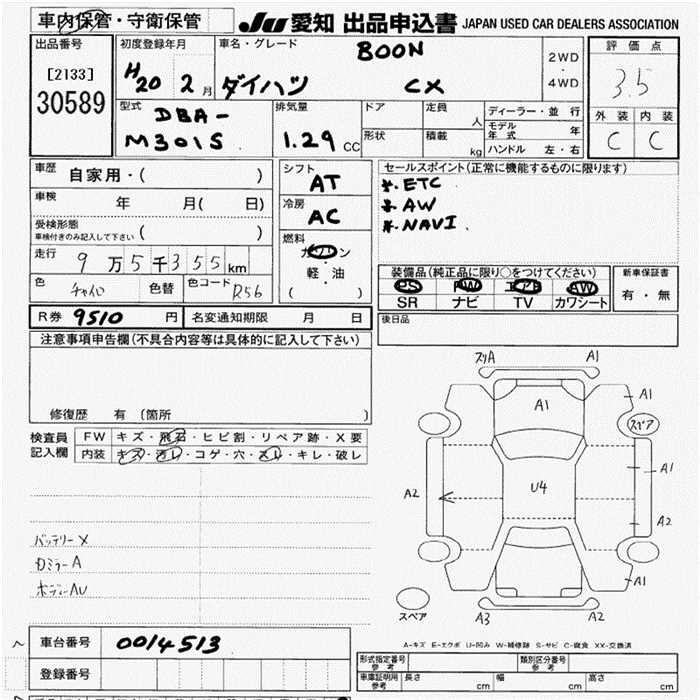 車内保管・守衛保管
JU 愛知 出品申込書 JAPAN USED CAR DEALERS ASSOCIATION
出品番号
[2133]
30589
初度登録年月
H20 2月
車名・グレード
BOON
ダイハツ CX
2WD
・
4WD
評価点
3.5
外装 内装
C C
型式
DBA-
M301S
排気量
1.29 CC
ドア
定員
人
形状
積載
kg
ディーラー・並行
モデル年式 年
ハンドル 左・右
車歴 自家用・( )
車検 年 月( 日)
受検形態
車検付きのみ記入して下さい ( )
走行 9万5千355km
色 色替 色コード R56
シフト
AT
冷房
AC
燃料
ガソリン
・
軽・油
( )
セールスポイント(正常に機能するものに限ります)
*.ETC
*.AW
*.NAVI
装備品(純正品に限り○をつけてください)
PS PW エアB AW
SR ナビ TV カワシート
新車保証書
有・無
後日品
R券 9510 円
名変通知期限 月 日
注意事項申告欄(不具合内容等は具体的に記入して下さい)
修復歴 有 (箇所 )
検査員
記入欄
FW キズ・飛石・ヒビ割・リペア跡・X要
内装 キズ・汚レ・コゲ・穴・スレ・キレ・破レ
バッテリーX
Dミラー A
ボディーAU
スリA A1
A1
A1
スペア
A1
A2
U4
A2
A1
スペア
A3
A2
A-キズ E-エクボ U-凹み W-補修跡 S-サビ C-腐食 XX-交換済
車台番号 0014513
登録番号
形式指定番号
参考
類別区分番号
参考
車庫証明用
参考
長さ cm
幅 cm
高さ cm